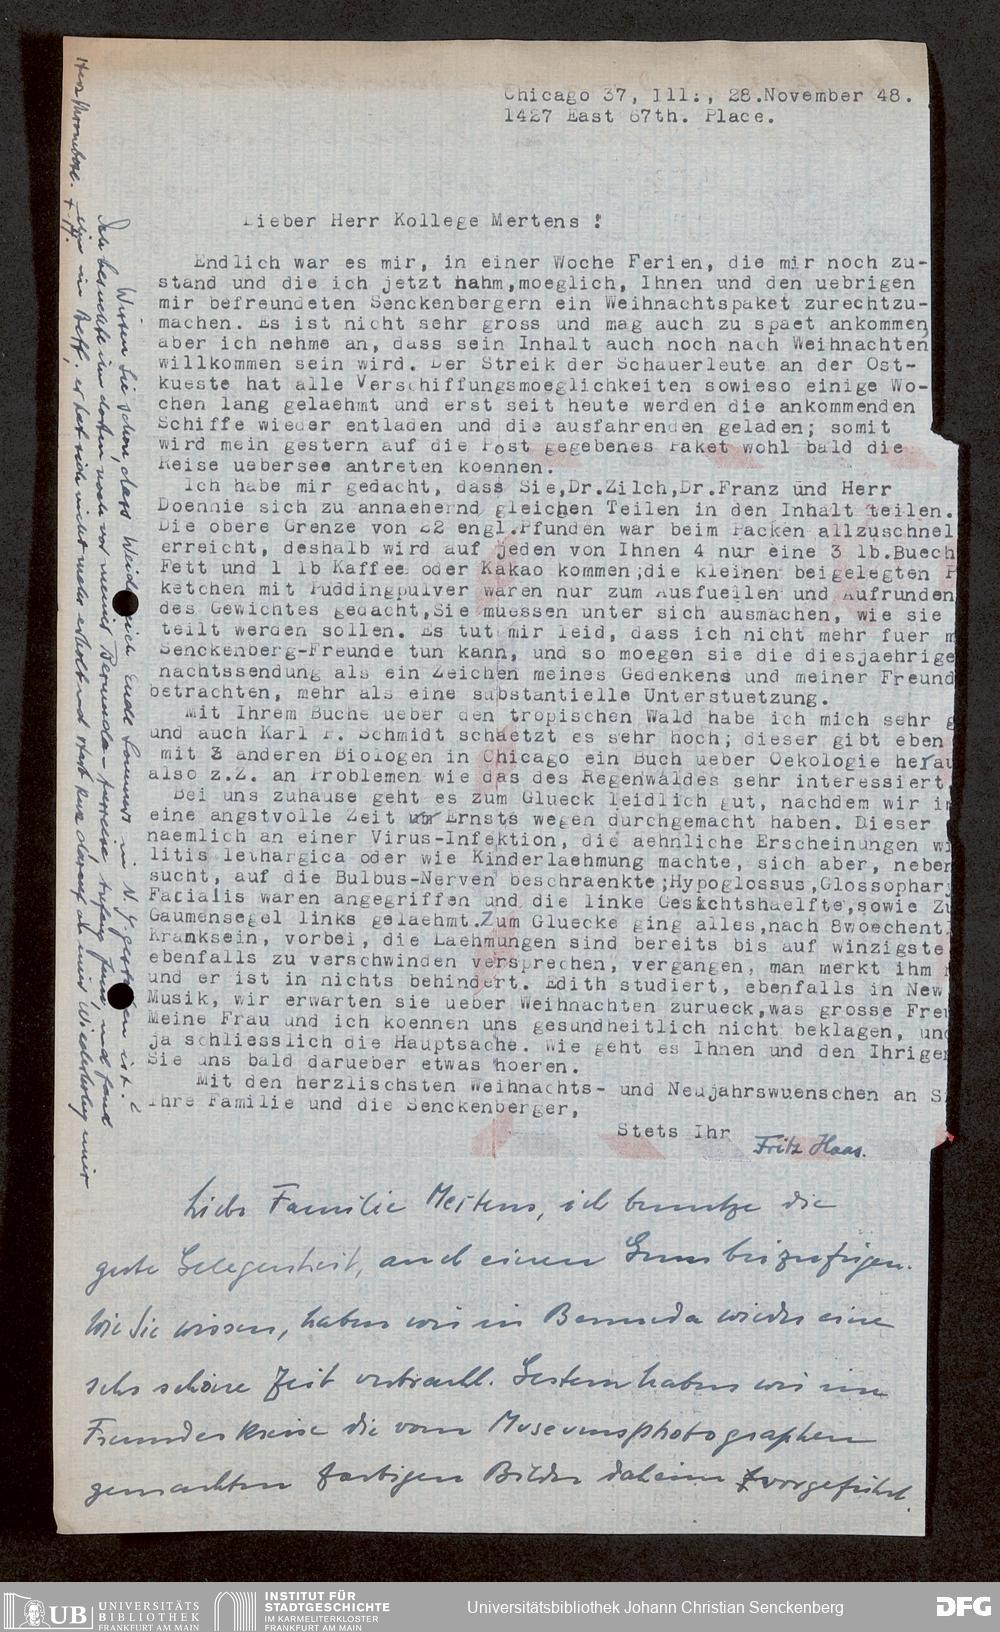 Chicago 37, Ill:, 28.November 48.
1427 East 67th. Place.
Lieber Herr Kollege Mertens !
Endlich war es mir, in einer Woche Ferien, die mir noch zu-
stand und die ich jetzt nahm,moeglich, Ihnen und den uebrigen
mir befreundeten Senckenbergern ein Weihnachtspaket zurechtzu-
machen. Es ist nicht sehr gross und mag auch zu spaet ankommen
aber ich nehme an, dass sein Inhalt auch noch nach Weihnachten
willkommen sein wird. Der Streik der Schauerleute an der Ost-
kueste hat alle Verschiffungsmoeglichkeiten sowieso einige Wo-
chen lang gelaehmt und erst seit heute werden die ankommenden
Schiffe wieder entladen und die ausfahrenden geladen; somit
wird mein gestern auf die Post gegebenes Paket wohl bald die
Reise uebersee antreten koennen.
Ich habe mir gedacht, dass Sie,Dr.Zilch,Dr.Franz und Herr
Doennie sich zu annaehernd gleichen Teilen in den Inhalt teilen.
Die obere Grenze von 22 engl.Pfunden war beim Packen allzuschnel
erreicht, deshalb wird auf jeden von Ihnen 4 nur eine 3 lb.Buech
Fett und 1 lb Kaffee oder Kakao kommen;die kleinen beigelegten P
ketchen mit Puddingpulver waren nur zum Ausfuellen und Aufrunden
des Gewichtes gedacht,Sie muessen unter sich ausmachen, wie sie
teilt werden sollen. Es tut mir leid, dass ich nicht mehr fuer m
Senckenberg-Freunde tun kann, und so moegen sie die diesjaehrige
nachtssendung als ein Zeichen meines Gedenkens und meiner Freund
betrachten, mehr als eine substantielle Unterstuetzung.
Mit Ihrem Buche ueber den tropischen Wald habe ich mich sehr g
und auch Karl P. Schmidt schaetzt es sehr hoch; dieser gibt eben
mit 3 anderen Biologen in Chicago ein Buch ueber Oekologie herau
also z.Z. an Problemen wie das des Regenwaldes sehr interessiert
Bei uns zuhause geht es zum Glueck leidlich gut, nachdem wir im
eine angstvolle Zeit Ernsts wegen durchgemacht haben. Dieser
naemlich an einer Virus-Infektion, die aehnliche Erscheinungen wi
litis lethargica oder wie Kinderlaehmung machte, sich aber, neben
sucht, auf die Bulbus-Nerven beschraenkte;Hypoglossus,Glossophary
Facialis waren angegriffen und die linke Gesichtshaelfte,sowie Zu
Gaumensegel links gelaehmt.Zum Gluecke ging alles,nach 8woechent
Kranksein, vorbei, die Laehmungen sind bereits bis auf winzigste
ebenfalls zu verschwinden versprechen, vergangen, man merkt ihm
und er ist in nichts behindert. Edith studiert, ebenfalls in New
Musik, wir erwarten sie ueber Weihnachten zurueck,was grosse Freu
Meine Frau und ich koennen uns gesundheitlich nicht beklagen, und
ja schliesslich die Hauptsache. Wie geht es Ihnen und den Ihrigen
Sie uns bald darueber etwas hoeren.
Mit den herzlischsten Weihnachts- und Neujahrswuenschen an S
Ihre Familie und die Senckenberger,
Stets Ihr
Fritz Haas.
Liebe Familie Mertens, ich benutze die
gute Gelegenheit, auch einen Gruss beizufügen.
Wie Sie wissen, haben wir in Bermuda wieder eine
sehr schöne Zeit verbracht. Gestern haben wir im
Freundeskreise die vom Museumsphotographen
gemachten farbigen Bilder daheim vorgeführt.
Wissen Sie schon, dass Weid sich Ende Sommers in N.Y. gestorben ist?
Ich besuchte ihn dorten noch vor meiner Bermuda-reise und fand
ihn im Bett; er hat sich nicht mehr erholt und starb kurz darauf an einer Wiederholung einer
UB UNIVERSITÄTS
BIBLIOTHEK
FRANKFURT AM MAIN
INSTITUT FÜR
STADTGESCHICHTE
IM KARMELITERKLOSTER
FRANKFURT AM MAIN
Universitätsbibliothek Johann Christian Senckenberg
DFG